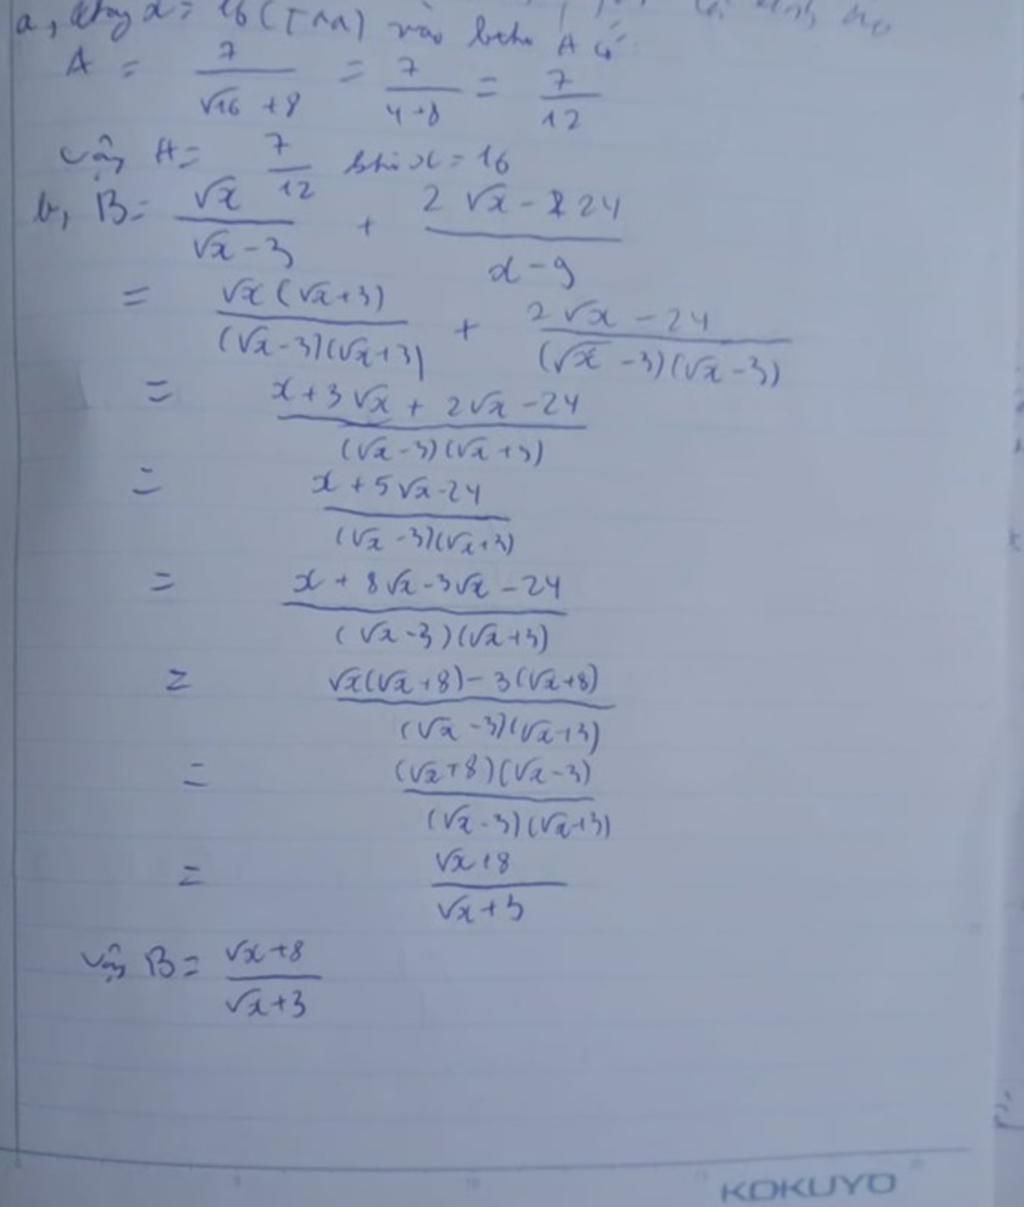 a, thay x = 16 (TMĐK) vào bth A có
A = 7/(√16 + 8) = 7/(4+8) = 7/12
Vậy A = 7/12 khi x = 16
b, B = √x/(√x - 3) + (2√x - 24)/(x - 9)
= √x(√x+3)/((√x-3)(√x+3)) + (2√x - 24)/((√x - 3)(√x - 3))
= (x + 3√x + 2√x - 24)/((√x-3)(√x+3))
= (x + 5√x - 24)/((√x-3)(√x+3))
= (x + 8√x - 3√x - 24)/((√x-3)(√x+3))
= (√x(√x+8) - 3(√x+8))/((√x-3)(√x+3))
= ((√x+8)(√x-3))/((√x-3)(√x+3))
= (√x+8)/(√x+3)
Vậy B = (√x+8)/(√x+3)
KOKUYO